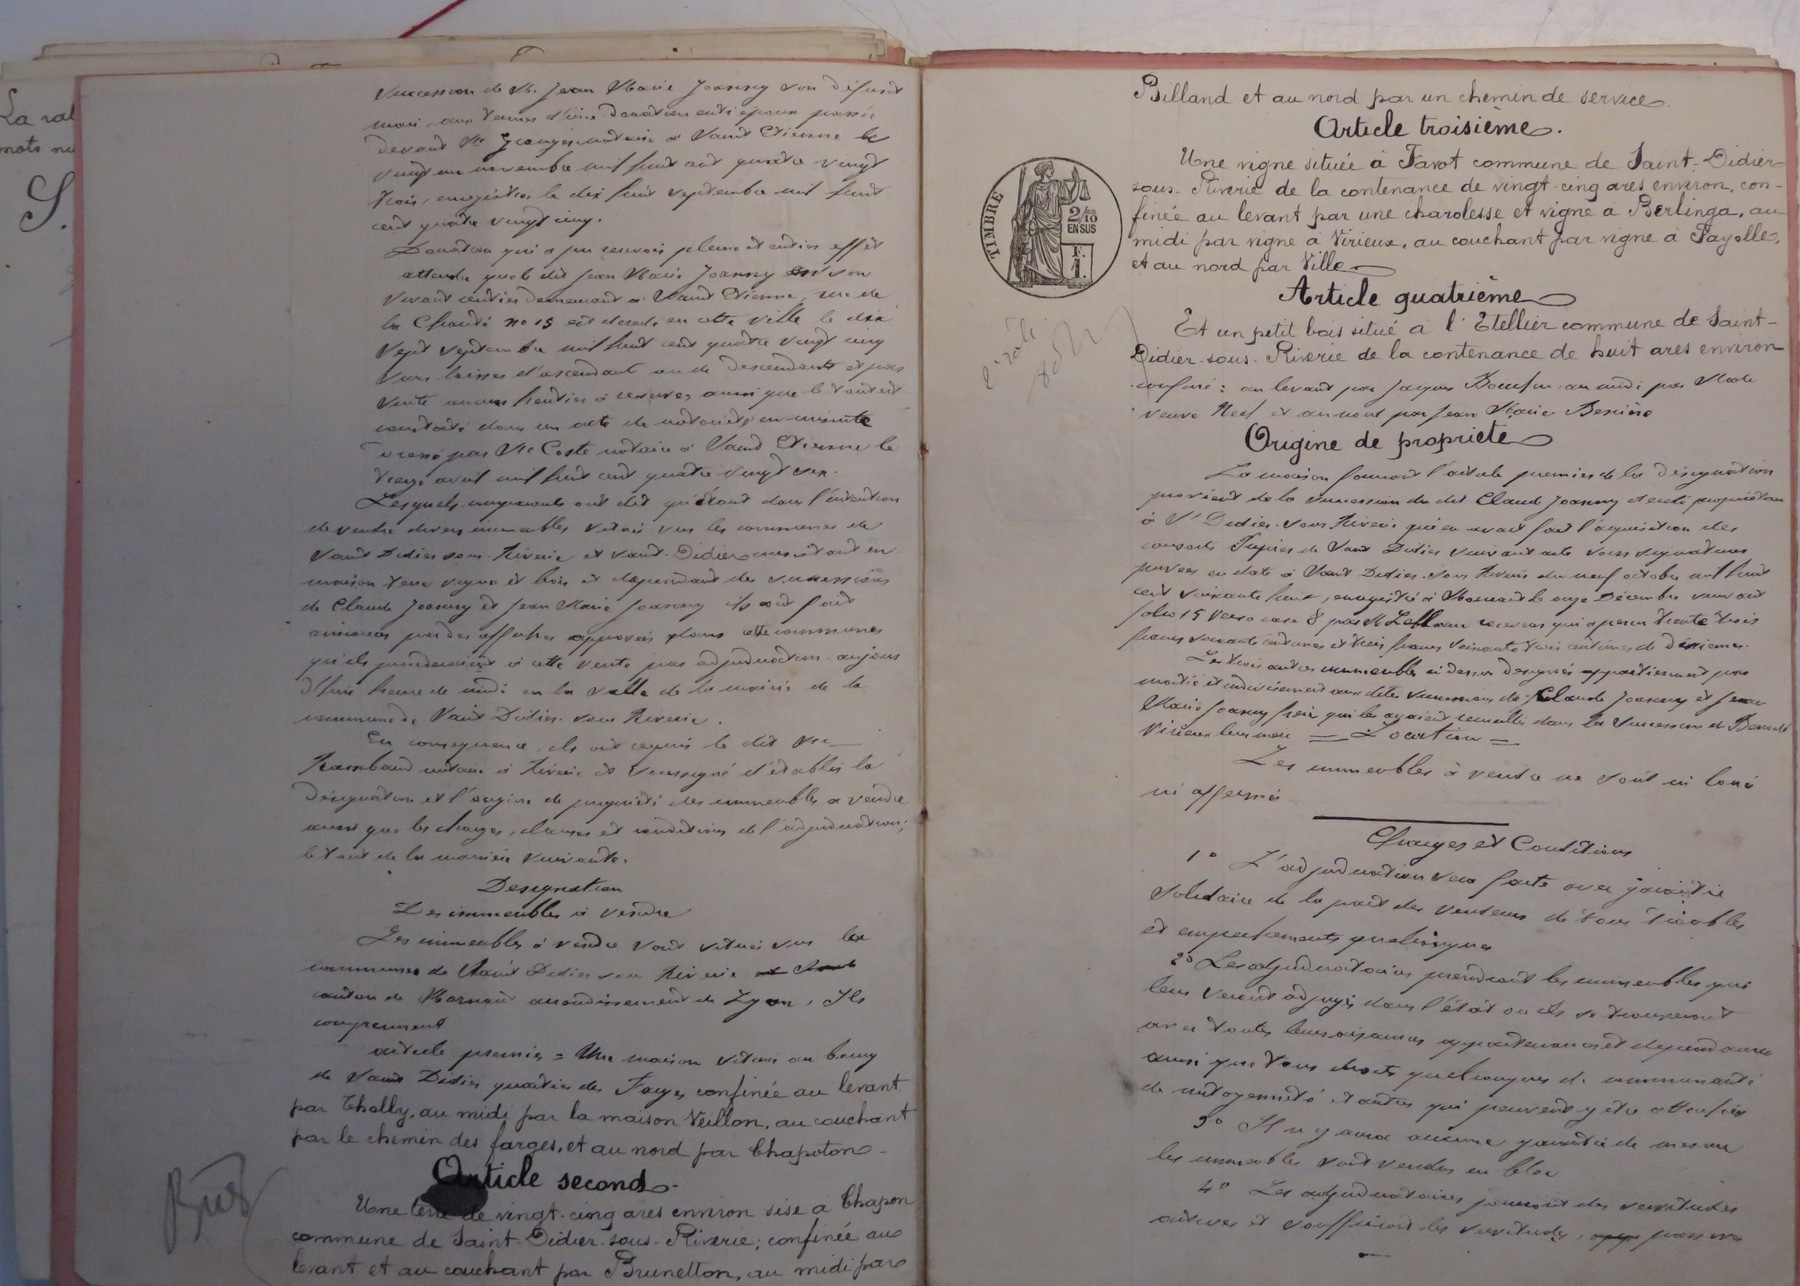 La ral
mots nu
S.
succession de M. Jean Marie Joanny son défunt
mari, aux termes d'une donation entre époux passée
devant Me notaire à Saint Etienne le
vingt un novembre mil huit cent quatre vingt
trois, enregistrée le dix huit septembre mil huit
cent quatre vingt cinq.
Donation qui a pu recevoir pleine et entière effet
attendu que le dit Jean Marie Joanny en son
vivant rentier demeurant à Saint Etienne, rue de
la Charité no 15 est décédé en cette ville le dix
sept septembre mil huit cent quatre vingt cinq
sans laisser d'ascendant ou de descendants et par
suite aucun héritier à réserve, ainsi que le tout est
constaté dans un acte de notoriété en minute
dressé par Me Coste notaire à Saint Etienne le
treize avril mil huit cent quatre vingt six.
Lesquels comparants ont dit qu'étant dans l'intention
de vendre divers immeubles situés sur les communes de
Saint Didier sous Riverie et Saint Didier consistant en
maison terre vigne et bois et dépendant des successions
de Claude Joanny et Jean Marie Joanny ils ont fait
annoncer par des affiches apposées dans cette commune
qu'ils procéderaient à cette vente par adjudication aujour
d'hui heure de midi en la salle de la mairie de la
commune de Saint Didier sous Riverie.
En conséquence, ils ont requis le dit Me
Rambaud notaire à Riverie soussigné d'établir la
désignation et l'origine de propriété des immeubles à vendre
ainsi que les charges, clauses et conditions de l'adjudication;
le tout de la manière suivante.
Designation
Les immeubles à vendre
Les immeubles à vendre sont situés sur la
commune de Saint Didier sous Riverie
canton de Mornant arrondissement de Lyon, Ils
comprennent
article premier = Une maison située au bourg
de Saint Didier quartier des Farges, confinée au levant
par Tholly, au midi par la maison Veillon, au couchant
par le chemin des farges, et au nord par Chapoton -
Article second.
Une terre de vingt-cinq ares environ sise à Chapon
commune de Saint-Didier-sous-Riverie; confinée au
levant et au couchant par Brunetton, au midi par
Billand et au nord par un chemin de service.
Article troisième.
TIMBRE
2/10
EN SUS
F.
1.
Une vigne située à Favot commune de Saint-Didier-
sous-Riverie de la contenance de vingt-cinq ares environ, con-
finée au levant par une charolesse et vigne à Berlinga, au
midi par vigne à Virieux, au couchant par vigne à Fayolle,
et au nord par Ville
Article quatrième
Et un petit bois situé à l'Etellier commune de Saint-
Didier-sous-Riverie de la contenance de huit ares environ
confiné: au levant par Jacques au midi par
veuve Néel et au nord par Jean Marie
Origine de propriété
La maison formant l'article premier de la désignation
provient de la succession du dit Claude Joanny décédé propriétaire
à St Didier sous Riverie qui en avait fait l'acquisition des
consorts de Saint Didier suivant acte sous signatures
privées en date à Saint Didier sous Riverie du neuf octobre mil huit
cent soixante huit, enregistré à Mornant le onze Décembre suivant
folio 15 verso case 8 par M. qui a perçu trente trois
francs soixante centimes et trois francs soixante trois centimes de décimes.
Les trois autres immeubles ci dessus désignés appartiennent par
moitié et indivisément aux dites successions de Claude Joanny et Jean
Marie Joanny frère qui les avaient recueillis dans la succession de Benoite
Virieux leur mère = Location =
Les immeubles à vendre ne sont ni loués
ni affermés
Charges et Conditions
1o L'adjudication sera faite avec garantie
solidaire de la part des vendeurs de tous troubles
et empêchements quelconques
2o Les adjudicataires prendront les immeubles qui
leur seront adjugés dans l'état où ils se trouveront
avec toutes leurs aisances appartenances et dépendances
ainsi que tous droits quelconques de communauté
de mitoyenneté et autres qui peuvent y être attachés
3o Il n'y aura aucune garantie de mesure
les immeubles sont vendus en bloc
4o Les adjudicataires jouiront des servitudes
actives et souffriront les servitudes, passives